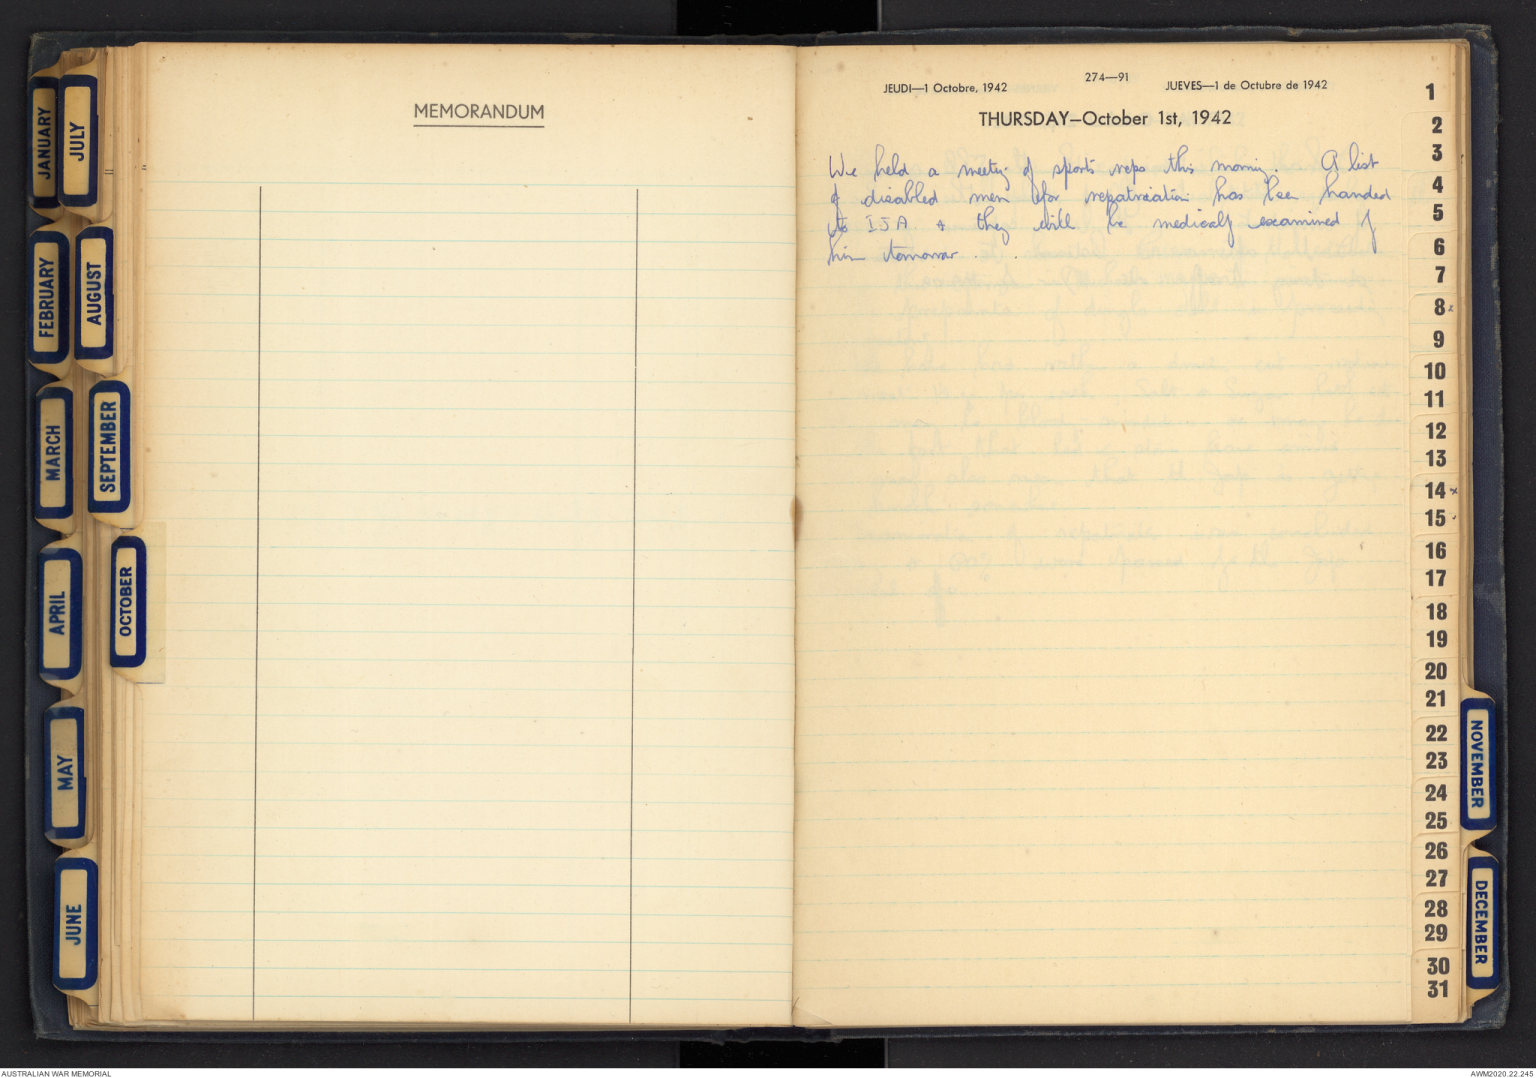 MEMORANDUM
JANUARY
JULY
FEBRUARY
AUGUST
MARCH
SEPTEMBER
APRIL
OCTOBER
MAY
JUNE
274—91
JEUDI—1 Octobre, 1942
JUEVES—1 de Octubre de 1942
THURSDAY—October 1st, 1942
We held a meeting of sports reps this morning. A list
of disabled men for repatriation has been handed
to IJA & they will be medically examined by
him tomorrow.
1
2
3
4
5
6
7
8x
9
10
11
12
13
14x
15
16
17
18
19
20
21
22
23
24
25
26
27
28
29
30
31
NOVEMBER
DECEMBER
AUSTRALIAN WAR MEMORIAL
AWM2020.22.245